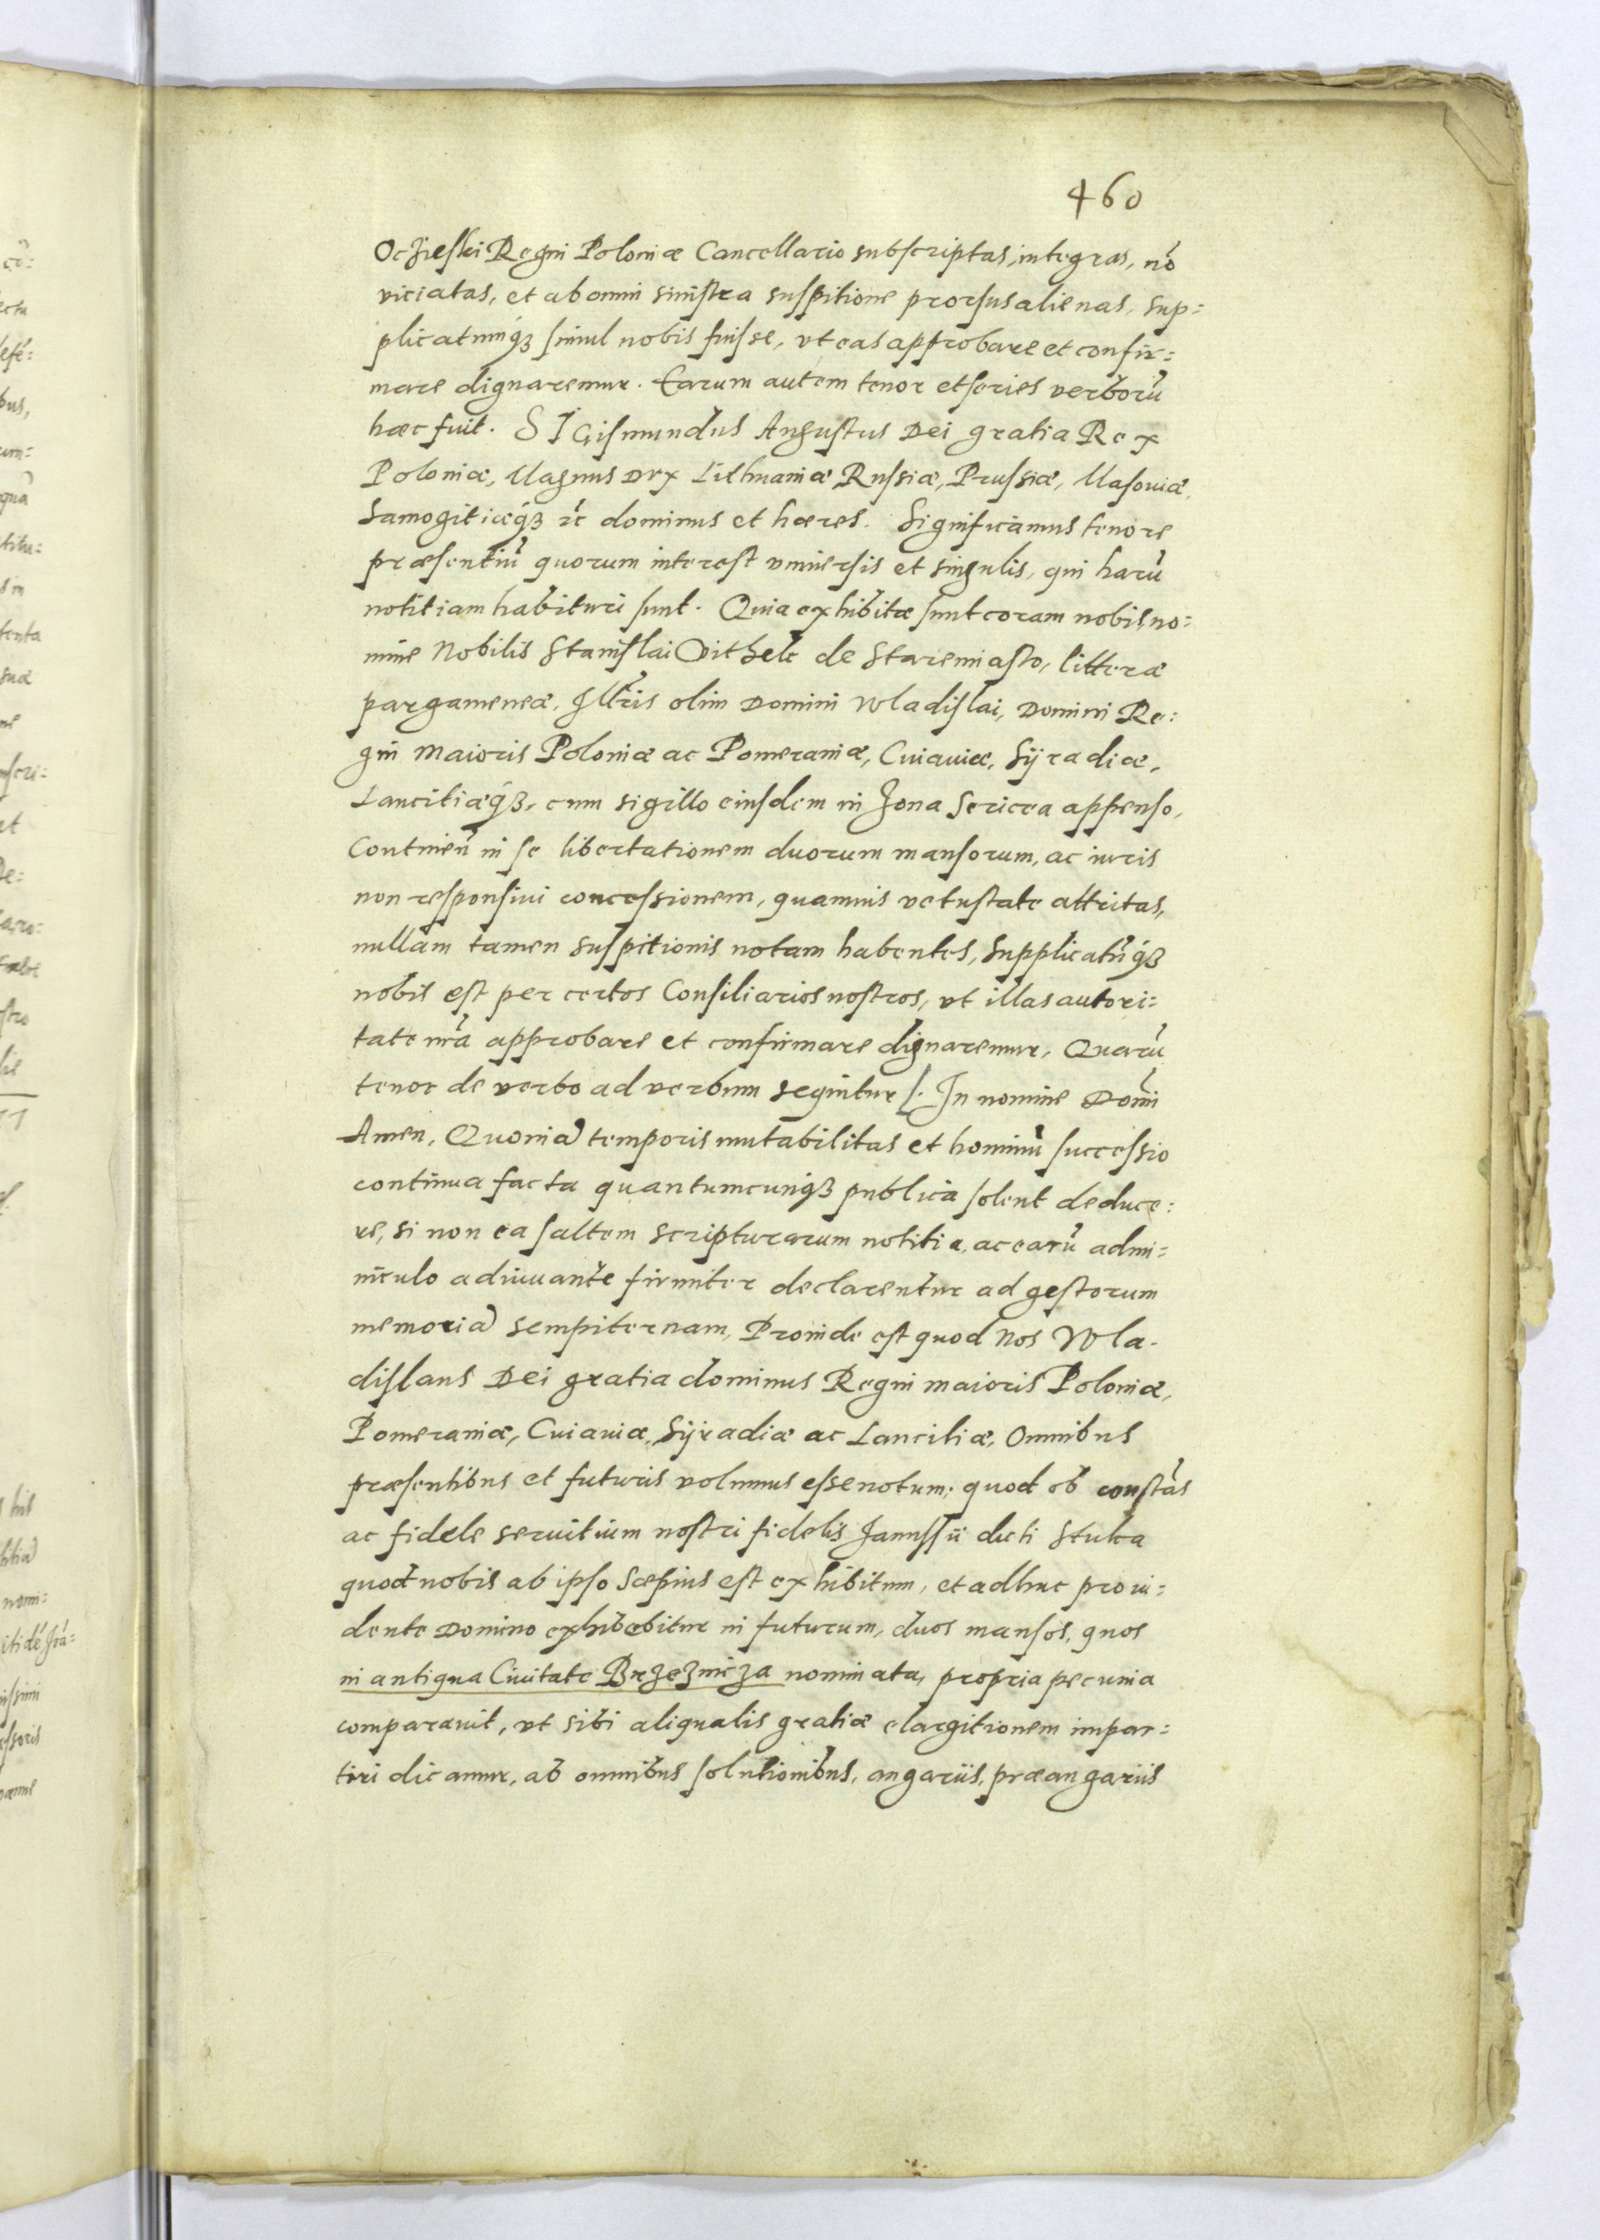 460
Ocżieski Regni Poloniæ Cancellario subscriptas, integras, nō
viciatas, et ab omni sinistra suspitione prorsus alienas, sup=
plicatumq3 simul nobis fuisse, vt eas approbare et confir=
mare dignaremur. Earum autem tenor et series verborū
hæc fuit. SIGismundus Augustus Dei gratia Rex
Poloniæ, Magnus Dux Lithuaniæ, Russiæ, Prussiæ, Masouiæ,
Samogitiæq3 rc dominus et hæres. Significamus tenore
præsentiū quorum interest vniuersis et singulis, qui harū
notitiam habituri sunt. Quia exhibitæ sunt coram nobis, no=
mine Nobilis Stanislai de Staremiasto, litteræ
pargameneæ, Illris olim Domini Wladislai, Domini Re=
gni Maioris Poloniæ ac Pomeraniæ, Cuiauiæ, Sÿradiæ,
Lancitiæq3, cum sigillo eiusdem in zona Sericea appenso,
Continen̄ in se libertationem duorum mansorum, ac iuris
non responsiui concessionem, quamuis vetustate attritas,
nullam tamen suspitionis notam habentes, Supplicatūq3
nobis est per certos Consiliarios nostros, vt illas autori=
tate nrā approbare et confirmare dignaremur, Quarū
tenor de verbo ad verbum sequitur /. In nomine Domī
Amen. Quoniā temporis mutabilitas et hominū successio
continua facta quantumcunq3 publica solent deduce=
re, si non ea saltem scripturarum notitia, ac earū admi=
niculo adiuuante firmiter declarentur ad gestorum
memoriā sempiternam, Proinde est quod Nos Wla-
dislaus Dei gratia dominus Regni maioris Poloniæ,
Pomeraniæ, Cuiauiæ, Sÿradiæ ac Lancitiæ, Omnibus
præsentibus et futuris volumus esse notum, quod ob constās
ac fidele seruitium nostri fidelis Janussii dicti Stuka
quod nobis ab ipso Sæpius est exhibitum, et adhuc proui=
dente Domino exhibebitur in futurum, duos mansos, quos
in antiqua Ciuitate Brzeznicza nominata, propria pecunia
comparauit, vt sibi aliqualis gratiæ elargitionem impar=
tiri dicamur, ab omnibus solutionibus, angariis, præangariis